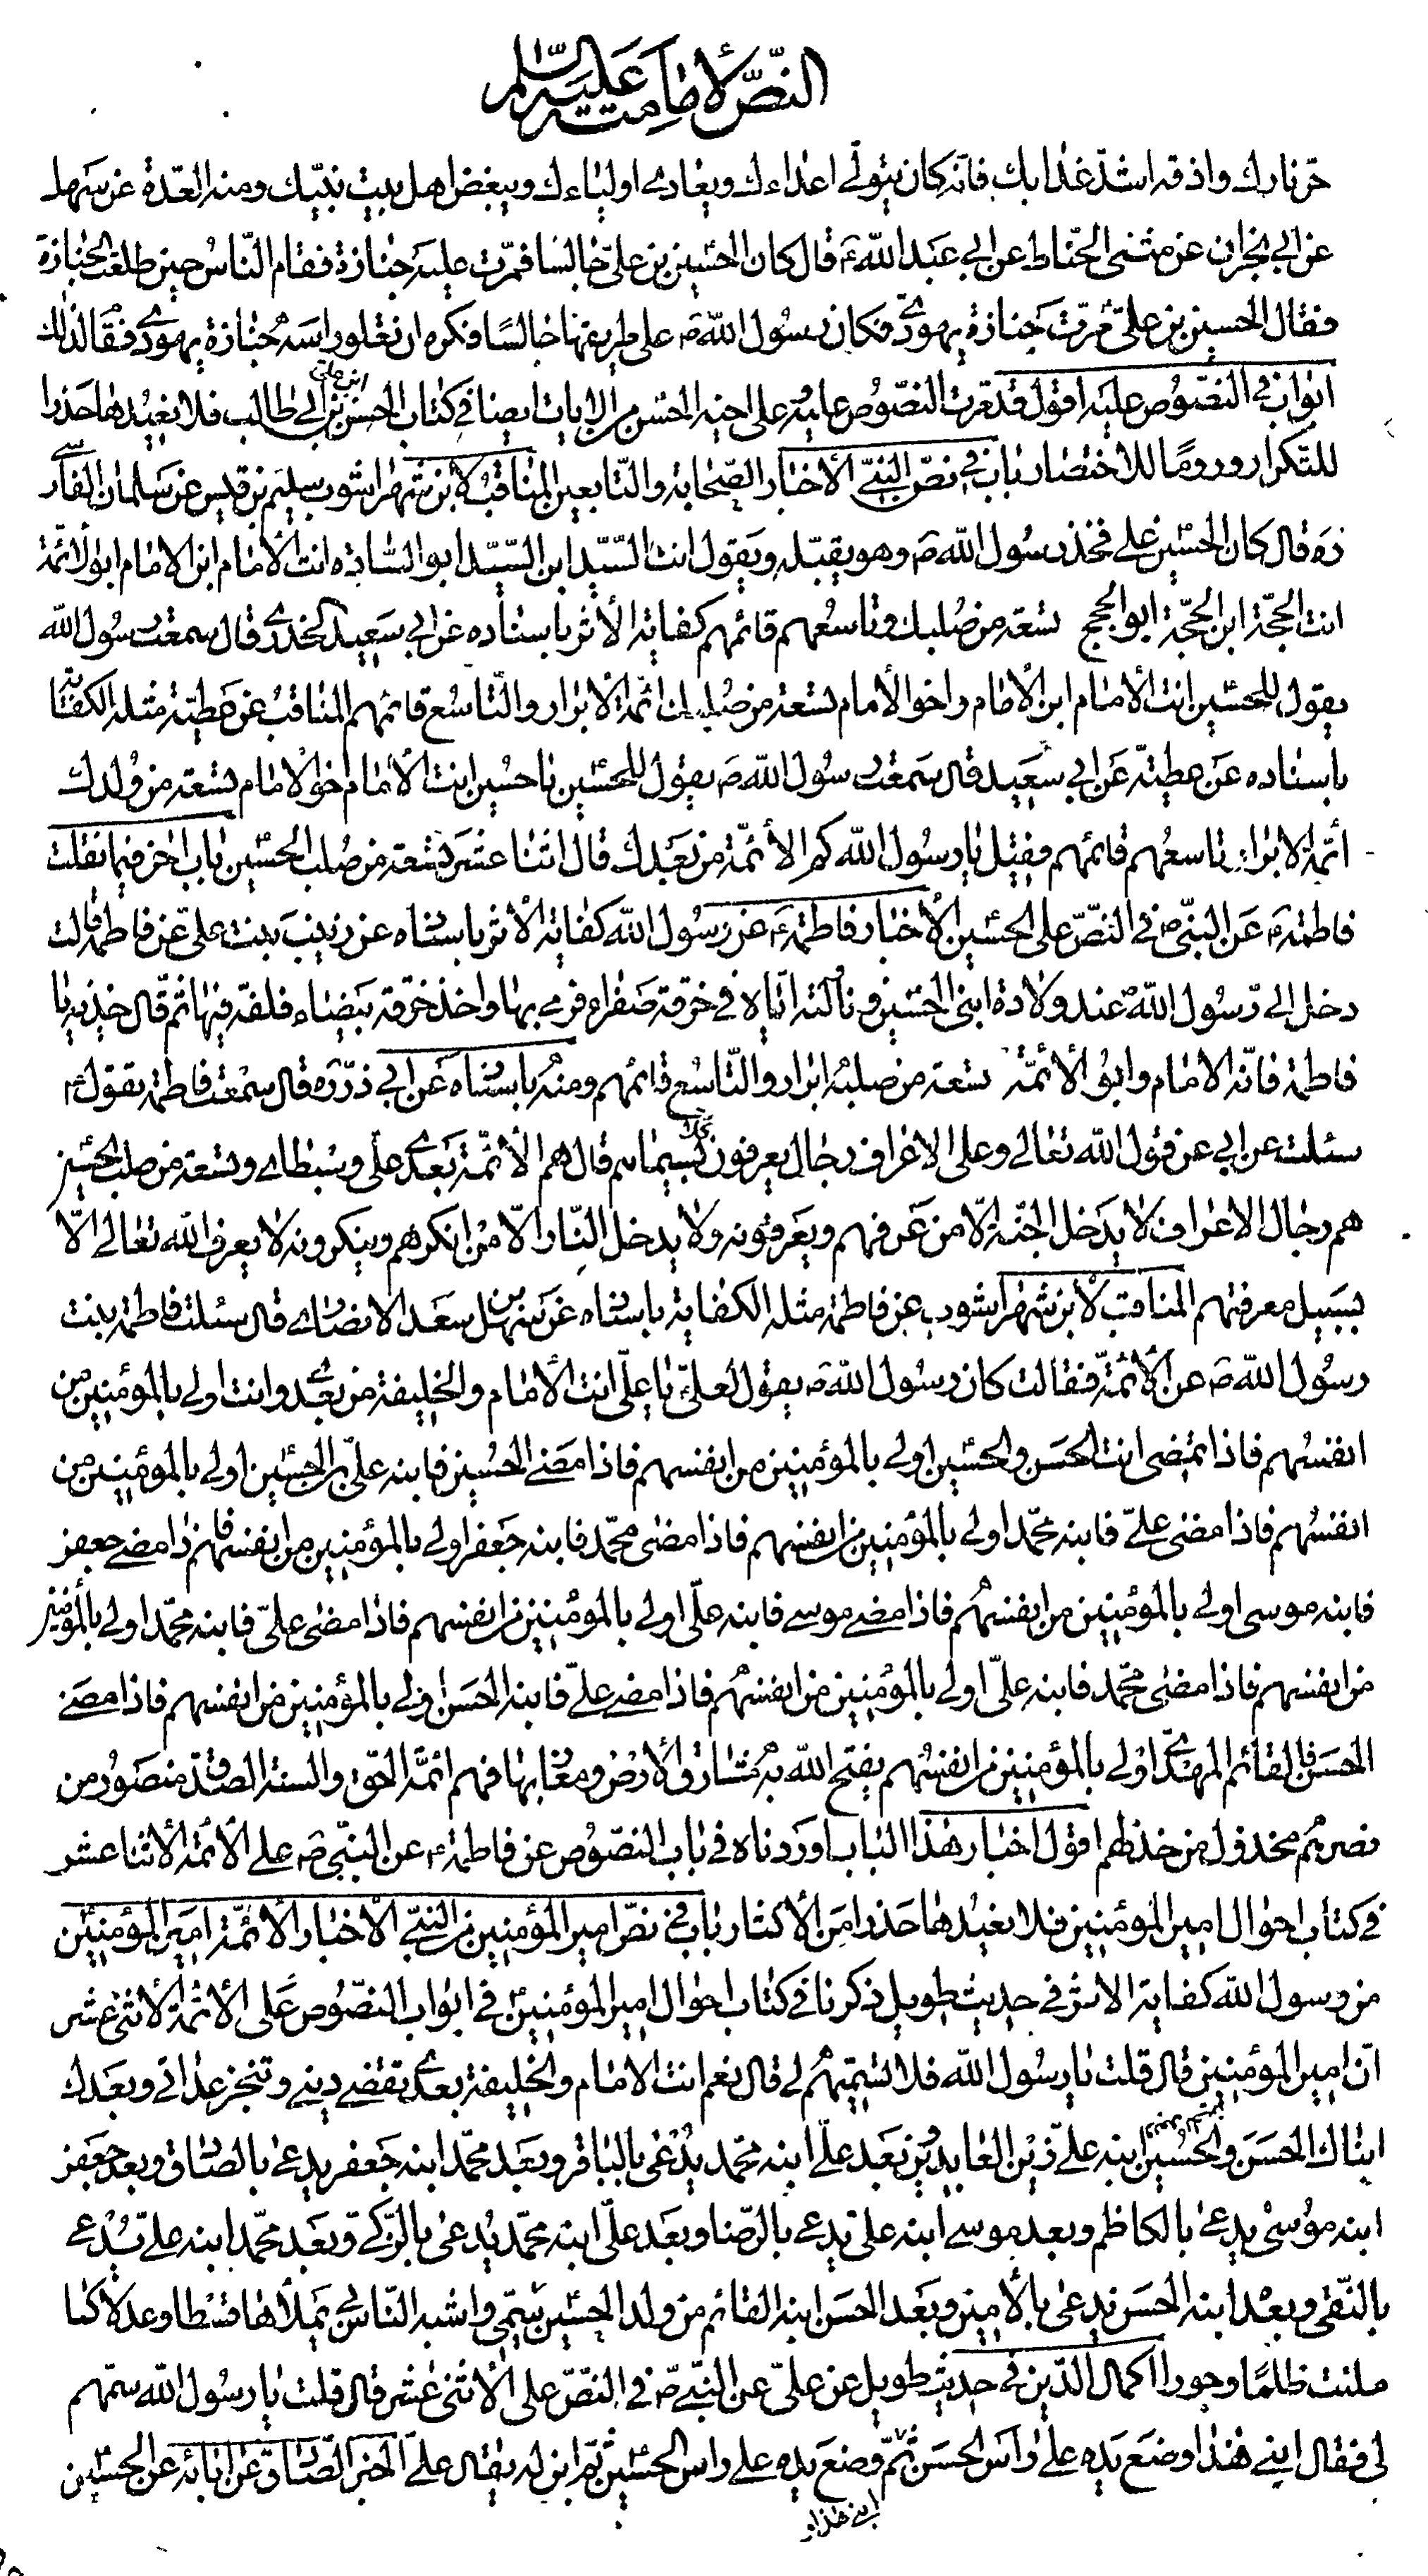 النصّ لأمامته عليه السّلم
حرّ نارك واذقه اشدّ عذابك فانّه كان يتولّى اعداءك ويعادى اولياءك ويبغض اهل بيت نبيّك ومنه العدّة عن سهل
عن ابى نجران عن مثنى الحنّاط عن ابى عبد اللّه ع قال كان الحسين بن علىّ جالسا فمرّت عليه جنازة فقام النّاس حين طلعت الجنازة
فقال الحسين بن علىّ مرّت جنازة يهودىّ وكان رسول اللّه ص على طريقها جالسًا فكره ان تعلو راسه جنازة يهودى فقام لذلك
ابواب فى النصّوص عليه اقول قد مرت النصّوص عليه على اخيه الحسن من الايات ايضا فى كتاب الحسن بن على بن ابى طالب فلا نعيدها حذرا
للتّكرار وروما للاختصار باب فى نصّ النبىّ الأخبار الصّحابة والتّابعين المناقب لابن شهراشوب سليم بن قيس عن سلمان الفارسى
ره قال كان الحسين على فخذ رسول اللّه ص وهو يقبّله ويقول انت السّيّد ابن السّيّد ابو السّادة انت الأمام ابن الامام ابو الائمّة
انت الحجّة ابن الحجّة ابو الحجج تسعة من صلبك وتاسعهم قائمهم كفاية الأثر باسناده عن ابى سعيد الخدرى قال سمعت رسول اللّه
يقول للحسين انت الأمام ابن الأمام واخو الأمام تسعة من صلبك ائمّة الابرار والتّاسع قائمهم المناقب عن عطيّة مثله الكفاية
باسناده عن عطيّة عن ابى سعيد قال سمعت رسول اللّه ص يقول للحسين يا حسين انت الأمام اخو الامام تسعة من ولدك
أئمّة الابرار تاسعهم قائمهم فقيل يا رسول اللّه كم الأئمّة من بعدك قال اثنا عشر تسعة من صلب الحسين باب اخر فيما نقلت
فاطمة ع عن النبىّ ص فى النصّ على الحسين الأخبار فاطمة ع عن رسول اللّه كفاية الأثر باسناده عن زينب بنت علىّ عن فاطمة قالت
دخل الىّ رسول اللّه ص عند ولادة ابنى الحسين فناولته ايّاه فى خرقة صفراء فرمى بها واخذ خرقة بيضاء فلفّه فيها ثم قال خذيه يا
فاطمة فانّه الامام وابو الأئمّة تسعة من صلبه ابرار والتّاسع قائمهم ومنه باسناده عن ابى ذرّ ره قال سمعت فاطمة تقول
سئلت عن ابى عن قول اللّه تعالى وعلى الاعراف رجال يعرفون كلّا بسيماهم قال هم الأئمّة بعدى علىّ وسبطاى وتسعة من صلب الحسين
هم رجال الاعراف لا يدخل الجنّة الّا من عرفهم ويعرفونه ولا يدخل النّار الّا من انكرهم وينكرونه لا يعرف اللّه تعالى الّا
بسبيل معرفتهم المناقب لابن شهراشوب عن فاطمة مثله الكفاية باسناده عن سهل بن سعد الانصارى قال سئلت فاطمة بنت
رسول اللّه ص عن الأئمّة فقالت كان رسول اللّه ص يقول لعلىّ يا علىّ انت الأمام والخليفة من بعدى وانت اولى بالمؤمنين من
انفسهم فاذا مضى انت الحسن والحسين اولى بالمؤمنين من انفسهم فاذا مضى الحسين فابنه علىّ بن الحسين اولى بالمؤمنين من
انفسهم فاذا مضى علىّ فابنه محمّد اولى بالمؤمنين من انفسهم فاذا مضى محمّد فابنه جعفر اولى بالمؤمنين من انفسهم فاذا مضى جعفر
فابنه موسى اولى بالمؤمنين من انفسهم فاذا مضى موسى فابنه علىّ اولى بالمؤمنين من انفسهم فاذا مضى علىّ فابنه محمّد اولى بالمؤمنين
من انفسهم فاذا مضى محمّد فابنه علىّ اولى بالمؤمنين من انفسهم فاذا مضى علىّ فابنه الحسن اولى بالمؤمنين من انفسهم فاذا مضى
الحسن فالقائم المهدىّ اولى بالمؤمنين من انفسهم يفتح اللّه به مشارق الأرض ومغاربها فهم ائمّة الحقّ والسنة الصّدق منصور من
نصرهم مخذول من خذلهم اقول اخبار هذا الباب اوردناه فى باب النصّوص عن فاطمة ع عن النبىّ ص على الأئمّة الأثنا عشر
فى كتاب احوال امير المؤمنين فلا نعيدها حذرا من الأكثار باب فى نصّ امير المؤمنين من النبىّ الأخبار الأئمّة امير المؤمنين
من رسول اللّه كفاية الاثر فى حديث طويل ذكرنا فى كتاب احوال امير المؤمنين فى ابواب النصّوص على الأئمّة الأثنى عشر
انّ امير المؤمنين قال قلت يا رسول اللّه فلا تسمّيهم لى قال نعم انت الامام والخليفة بعدى تقضى دينى وتنجز عداتى وبعدك
ابناك الحسن والحسين ابنه علىّ زين العابدين وبعد علىّ ابنه محمّد يدعى بالباقر وبعد محمّد ابنه جعفر يدعى بالصّادق وبعد جعفر
ابنه موسى يدعى بالكاظم وبعد موسى ابنه على يدعى بالرّضا وبعد علىّ ابنه محمّد يدعى بالزّكى وبعد محمّد ابنه علىّ يدعى
بالنّقى وبعد ابنه الحسن يدعى بالأمين وبعد الحسن ابنه القائم من ولد الحسين سمّيى واشبه النّاس بى يملأها قسطا وعدلا كما
ملئت ظلمًا وجورا اكمال الدّين فى حديث طويل عن علىّ عن النبىّ ص فى النصّ على الأثنى عشر قال قلت يا رسول اللّه سمّهم
لى فقال ابنى هذا ووضع يده على رأس الحسن ثمّ ووضع يده على راس الحسين ثمّ ابن له يقال علىّ الخبر الصّادق عن ابائه عن الحسين
ابنى هذا و